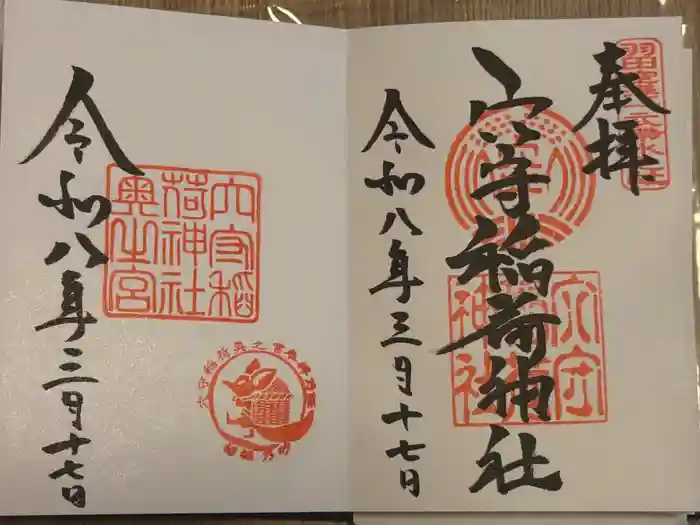 奉拝
穴守稲荷神社
穴守稲荷神社
令和八年三月十七日
穴守稲荷神社奥之宮
令和八年三月十七日